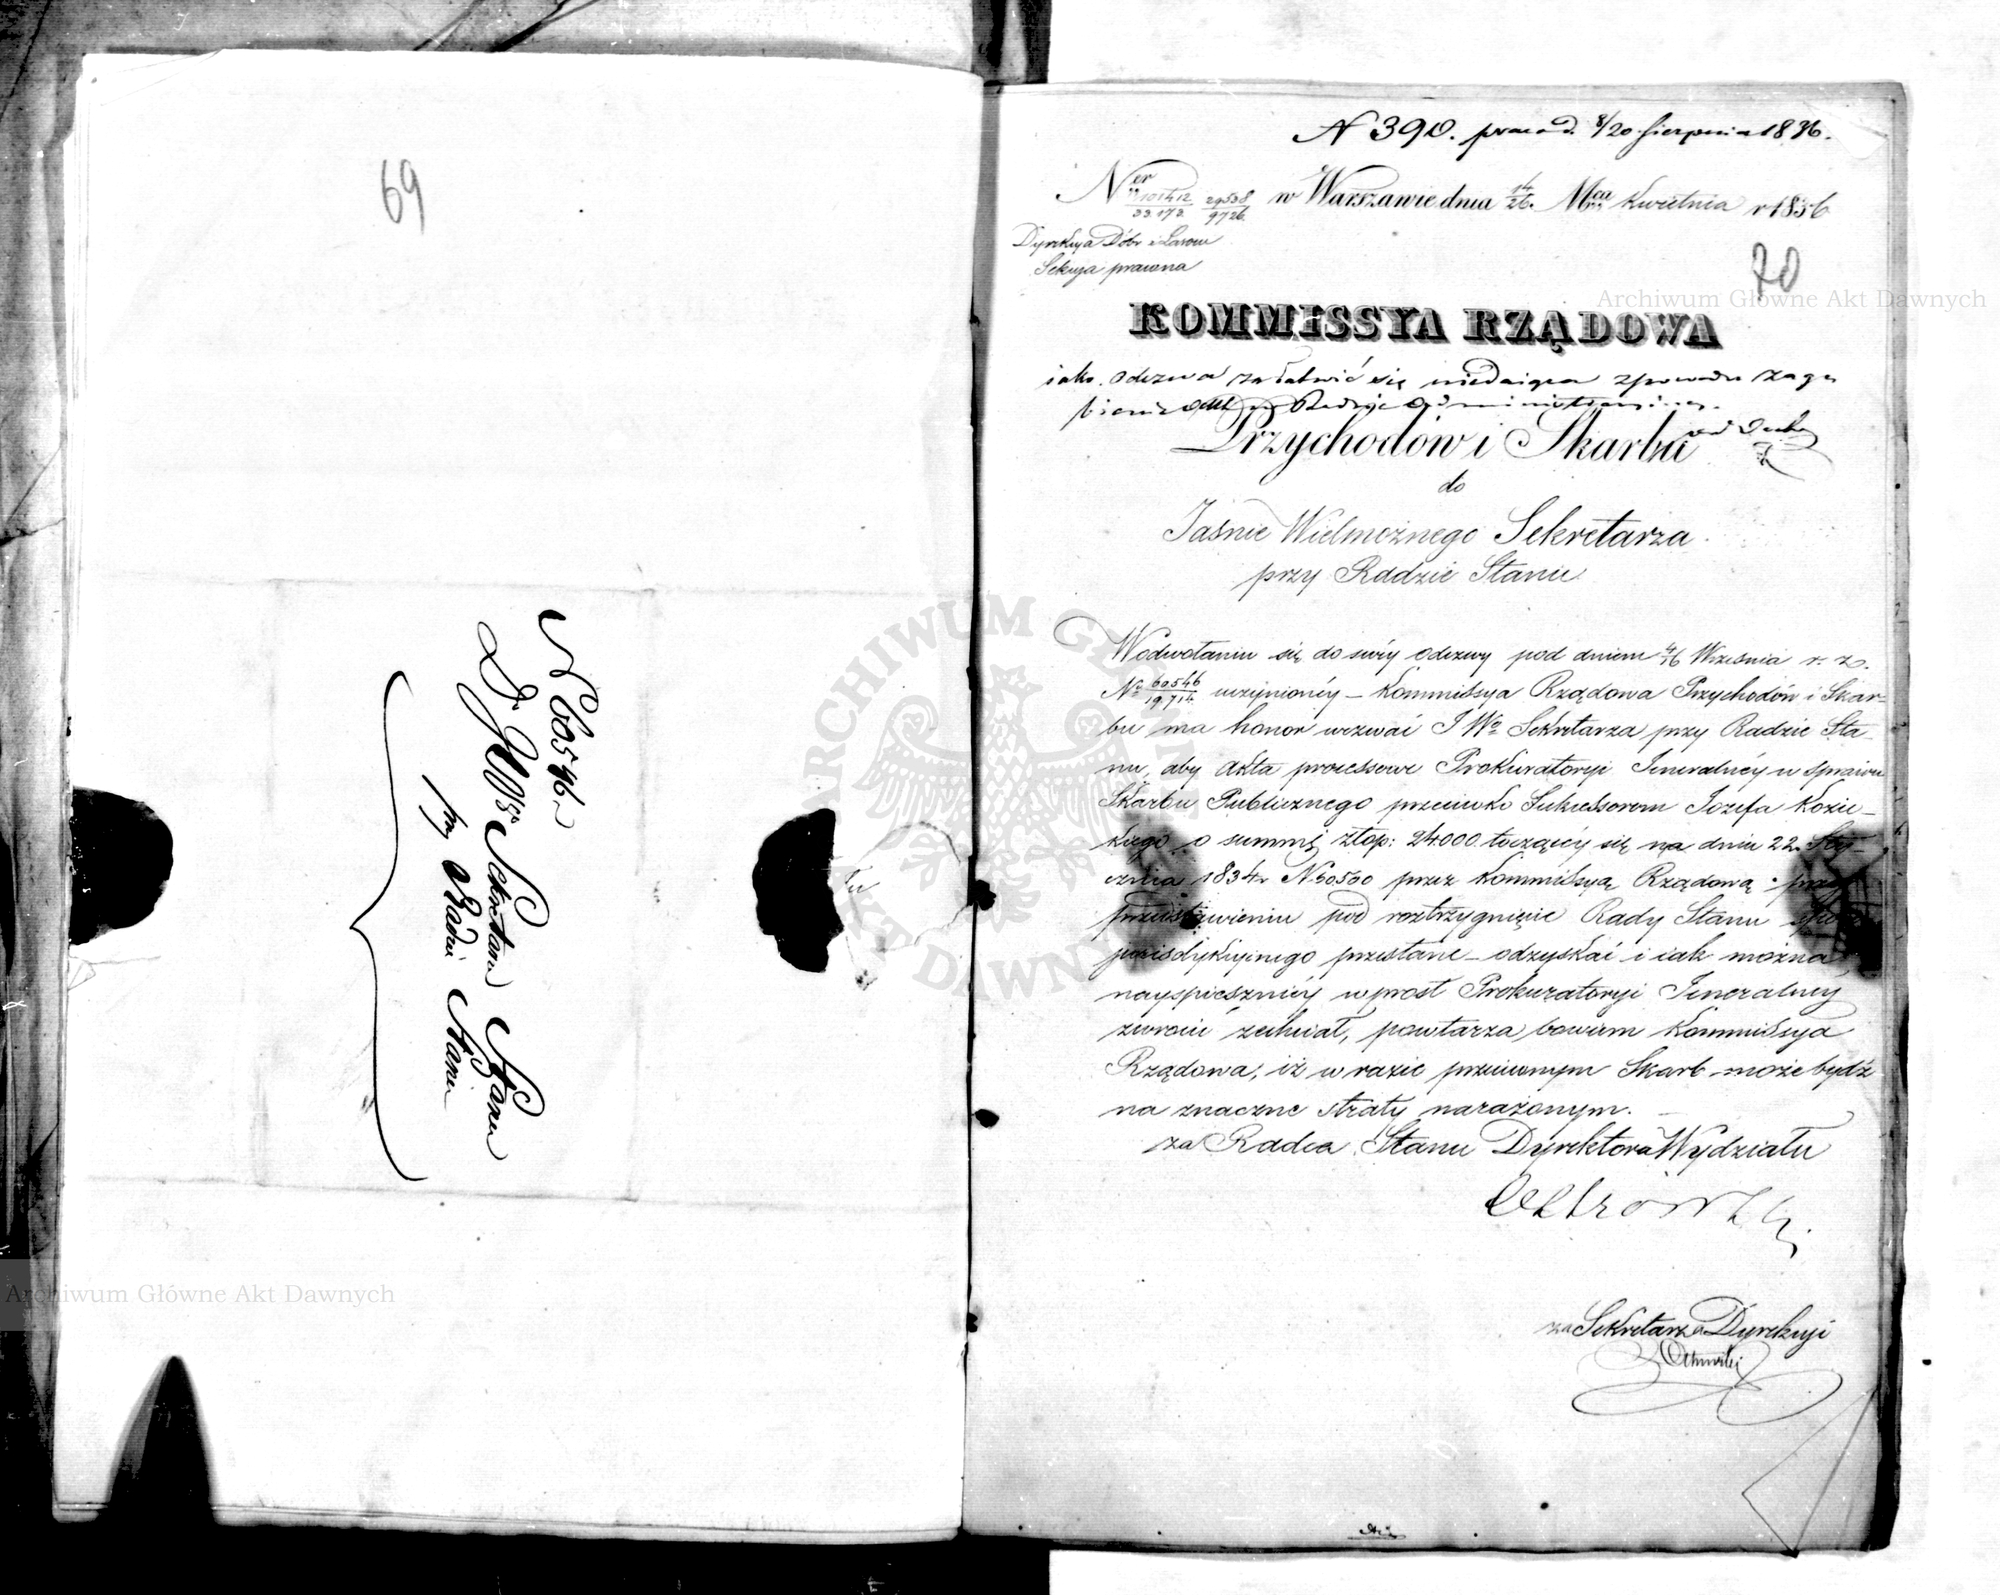 69
N 60546
Do JW Sekretarza Stanu
przy Radzie Stanu
N 390. d. 8/20 Sierpnia 1836.
Ner 101412/33173 29538/9726 w Warszawie dnia 14/26 Mca Kwietnia r 1836
Dyrekcya Dóbr i Lasów
Sekcya prawna
70
KOMMISSYA RZĄDOWA
iako odezwa załatwić się niedaiąca z powodu zagu
bienia akt w Radzie Administracyjney.
Przychodów i Skarbu
do
Jaśnie Wielmożnego Sekretarza
przy Radzie Stanu
W odwołaniu się do swéy odezwy pod dniem 4/16 Września r. z.
No 60546/19714 uczynionéy – Kommissya Rządowa Przychodów i Skar-
bu ma honor wezwać J Wo Sekretarza przy Radzie Sta-
nu, aby akta processowe Prokuratoryi Jeneralnéy w sprawie
Skarbu Publicznego przeciwko Sukcessorom Jozefa Kozic-
kiego o summę złop: 24000 toczącéy się na dniu 22. Sty-
cznia 1834 r N 50500 przez Kommissyą Rządową przy
przedstawieniu pod roztrzygnięcie Rady Stanu sporu
jurisdykcyinego przesłane – odzyskać i iak można
nayspieszniéy wprost Prokuratoryi Jeneralney
zwrócić zechciał, powtarza bowiem Kommissya
Rządowa, iż w razie przeciwnym Skarb może bydź
na znaczne straty narażonym.
za Radca Stanu Dyrektora Wydziału
Ostrowski
za Sekretarza Dyrekcyi
Archiwum Główne Akt Dawnych
Archiwum Główne Akt Dawnych
ARCHIWUM GŁÓWNE AKT DAWNYCH